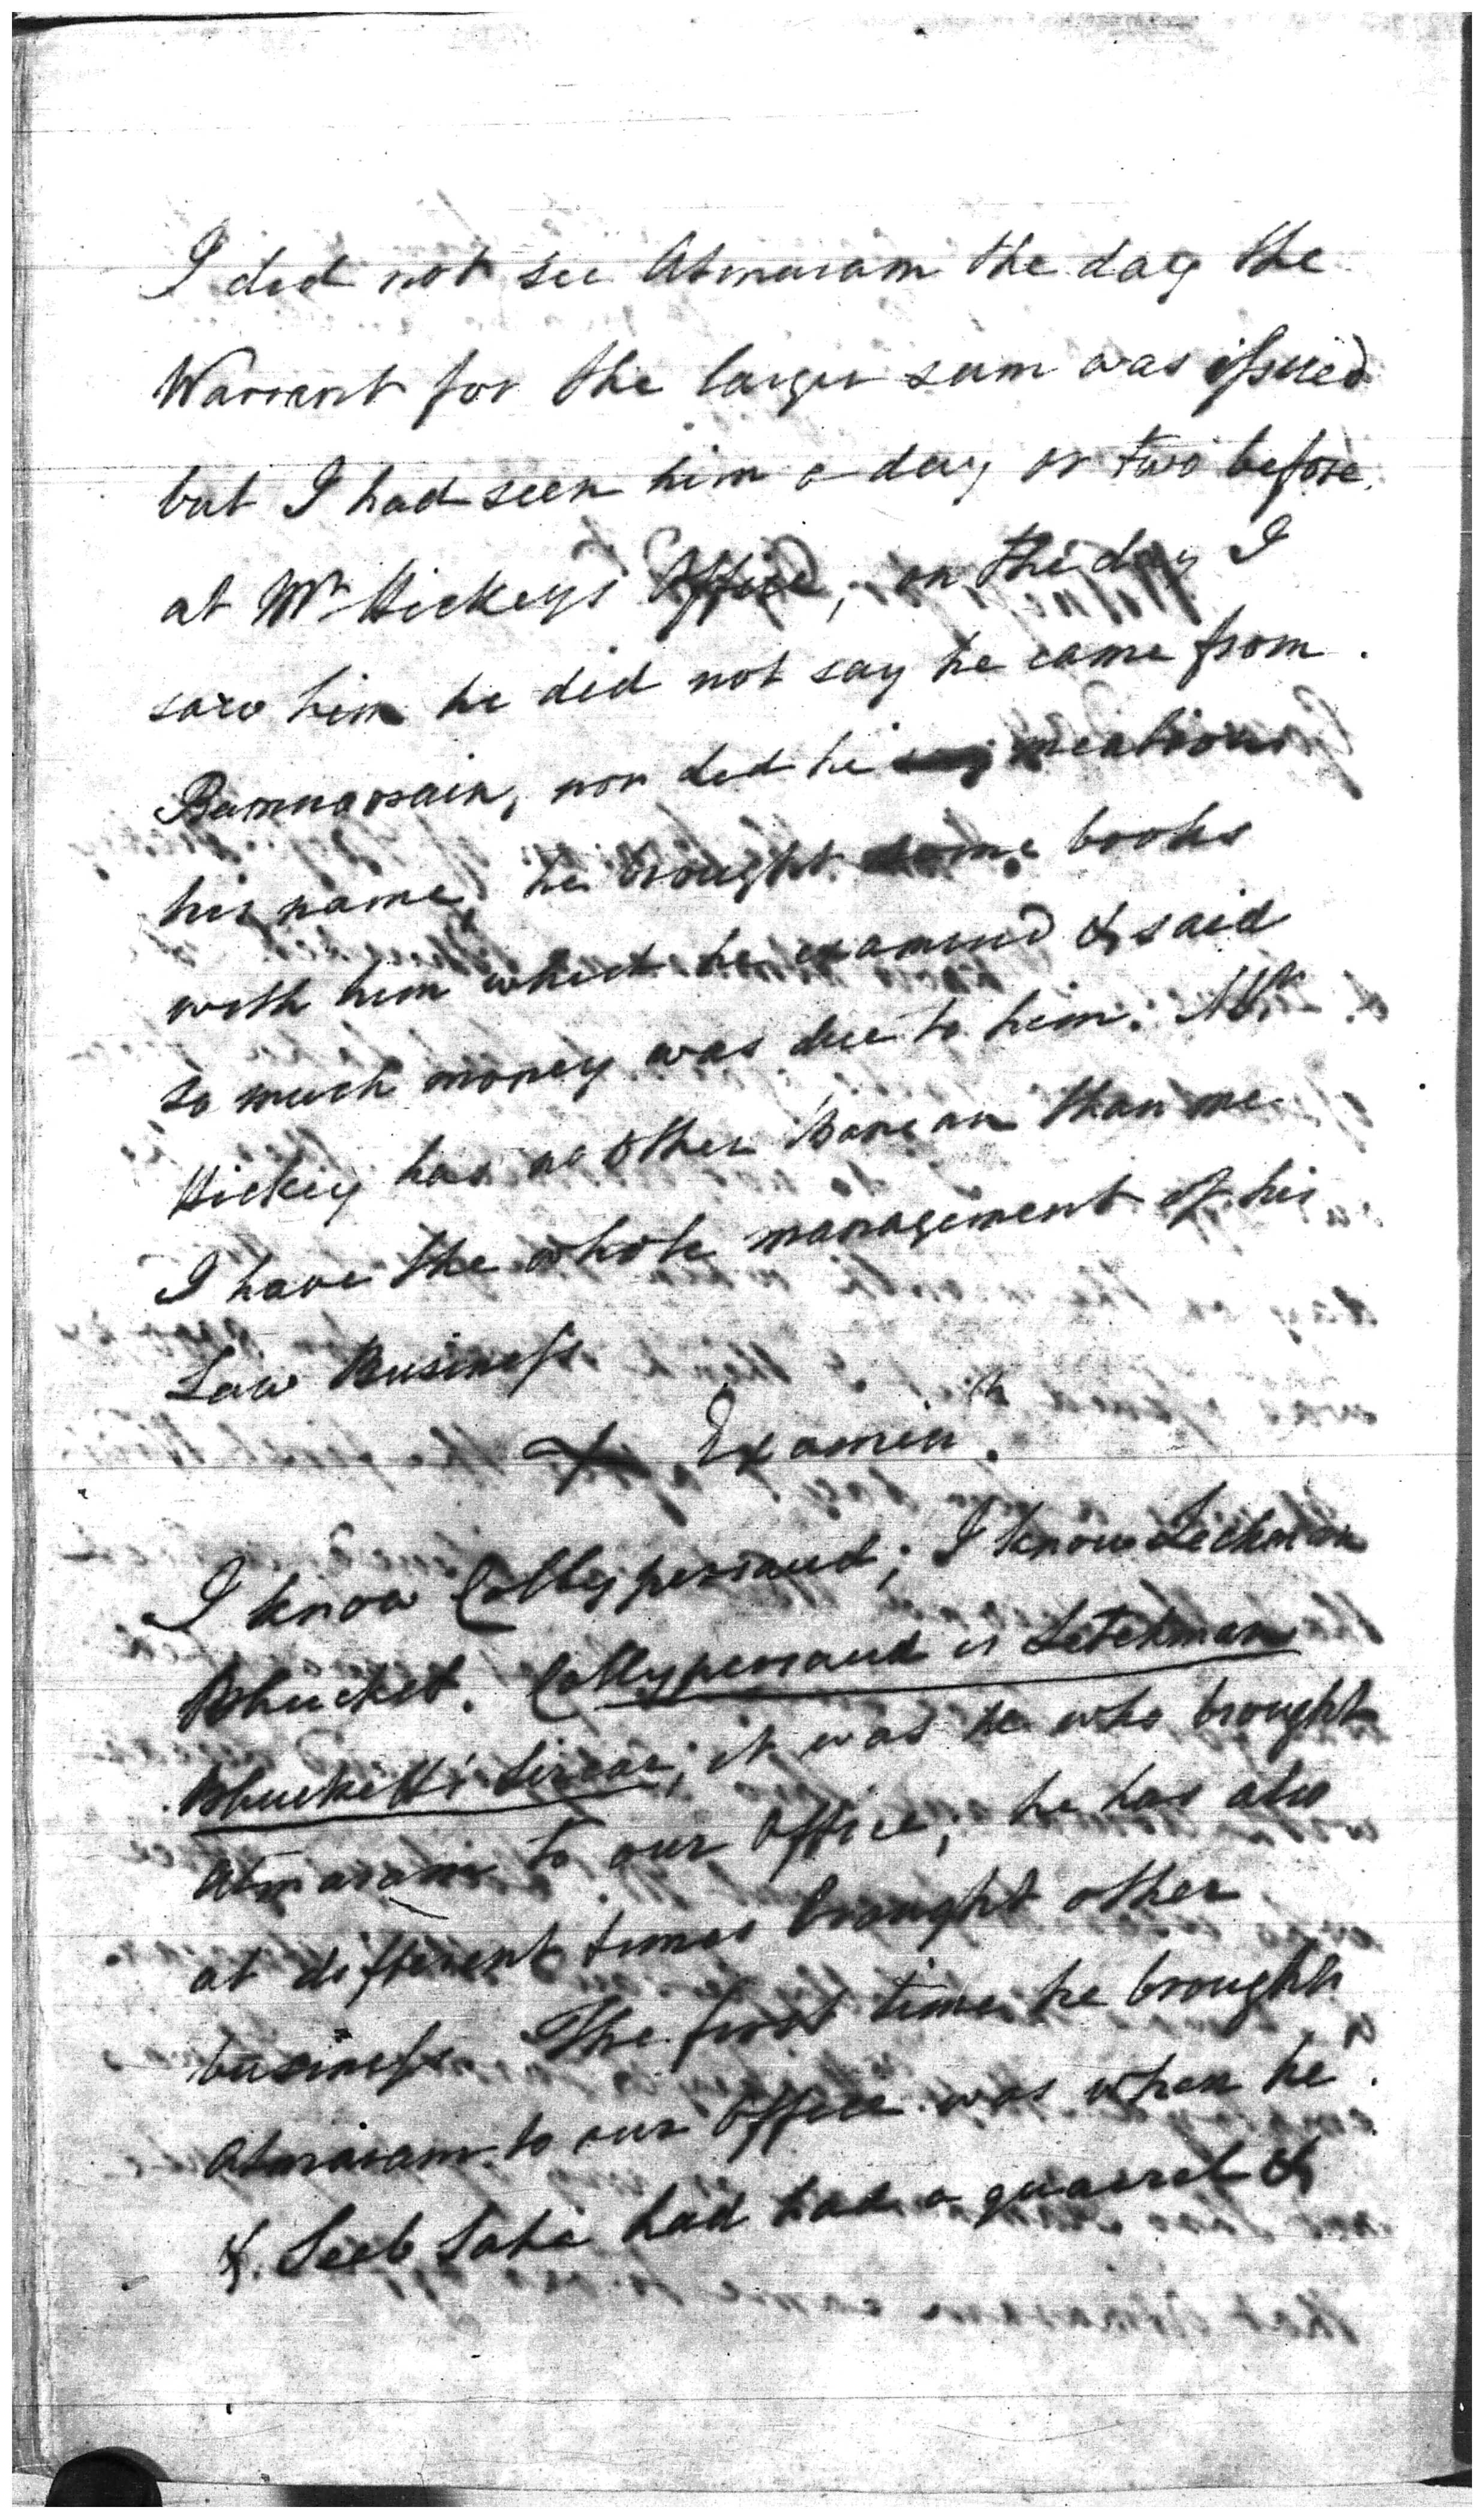 I did not see Atmaram the day the
Warrant for the larger sum was issued
but I had seen him a day or two before,
at Mr Hickeys Office, on the day I
saw him he did not say he came from
Bamnarrain, nor did he say mention
his name, he brought some books
with him which he examined & said
so much money was due to him. Mr
Hickey has no other Banean than me
I have the whole management of his
Law Business
X Examinn.
I know Collypersaud; I know Letchman
Bhucket. Collypersaud is Letchman
Bhuckett's Sircar; it was he who brought
Atmaram to our Office; he has also
at different times brought other
business The first time he brought
Atmaram to our Office was when he
& Seeb Saha had had a quarrel &